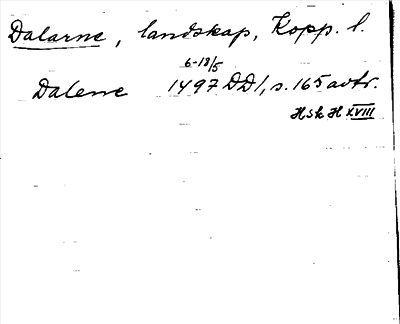 Dalarne, landskap, Kopp. l.
6-18/5
Dalene 1497 DD1, s. 165 avtr.
Hsk H XVIII